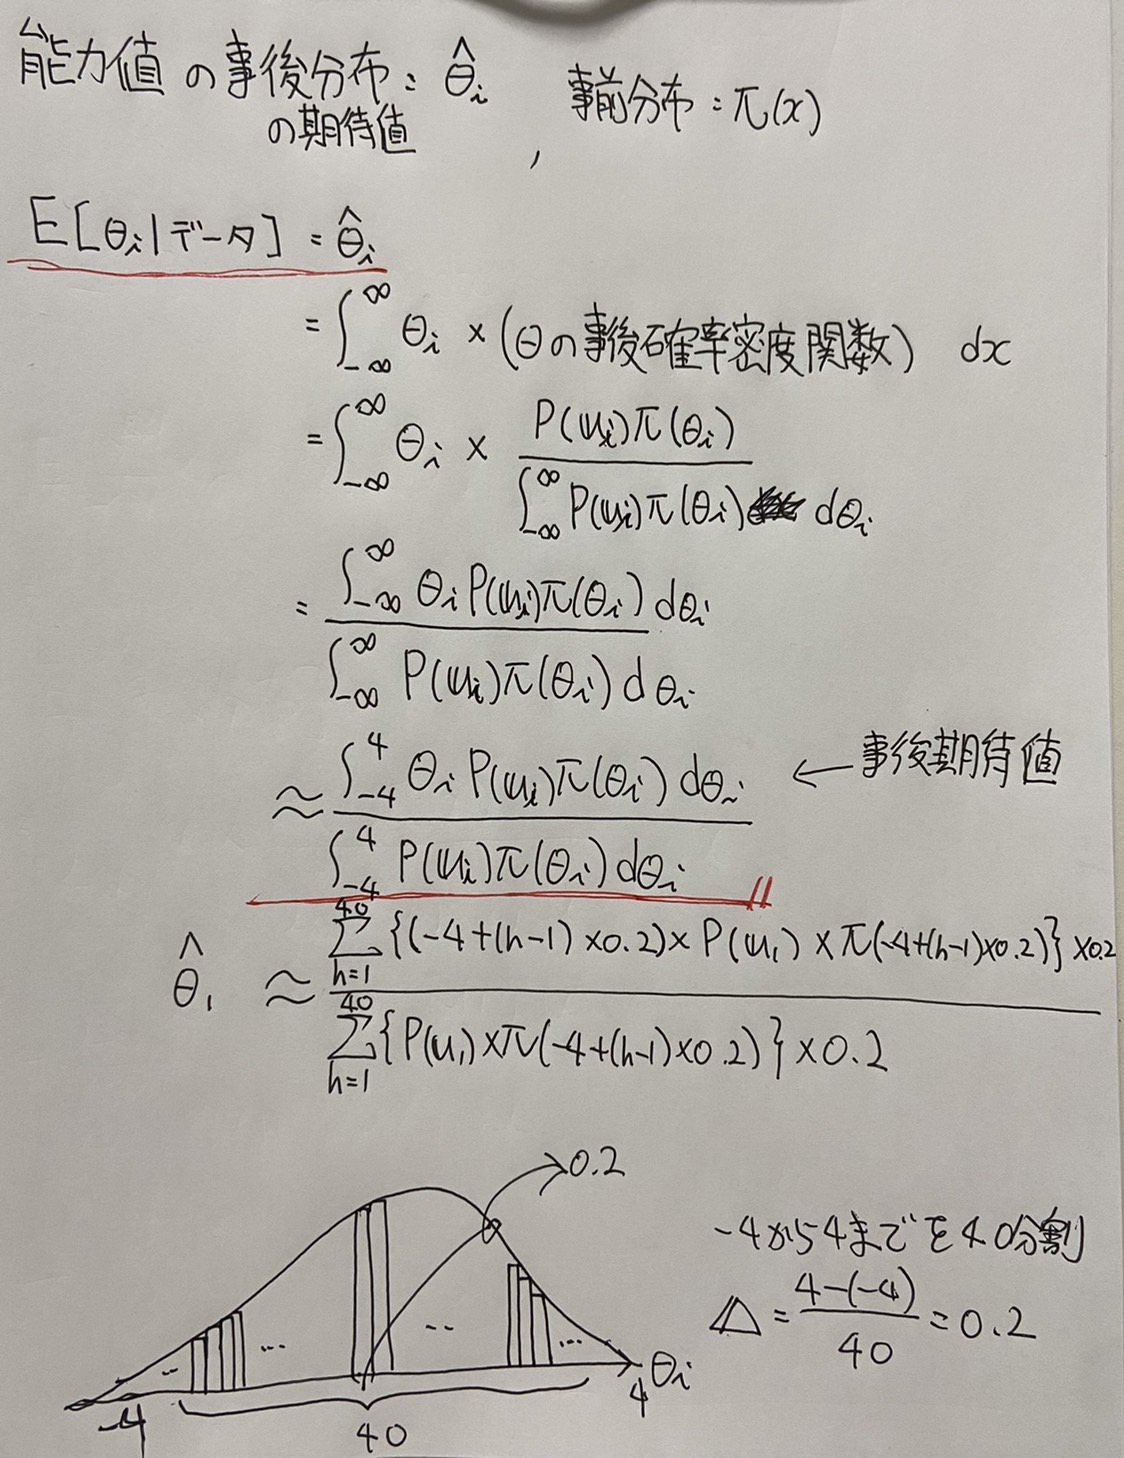 能力値の事後分布: θ̂i , 事前分布:π(x)
の期待値
E[θi|データ] = θ̂i
= ∫_{-∞}^{∞} θi × (θの事後確率密度関数) dx
= ∫_{-∞}^{∞} θi × P(ui)π(θi) / ∫_{-∞}^{∞} P(ui)π(θi) dθi
= ∫_{-∞}^{∞} θi P(ui)π(θi) dθi / ∫_{-∞}^{∞} P(ui)π(θi) dθi
≈ ∫_{-4}^{4} θi P(ui)π(θi) dθi / ∫_{-4}^{4} P(ui)π(θi) dθi ← 事後期待値
θ̂1 ≈ Σ_{h=1}^{40} {(-4+(h-1)×0.2)× P(u1) × π(-4+(h-1)×0.2)} ×0.2 / Σ_{h=1}^{40} {P(u1)×π(-4+(h-1)×0.2)} ×0.2
0.2
-4から4までを40分割
△ = 4-(-4) / 40 = 0.2
... ... ... ... 
-4 4 θi
40